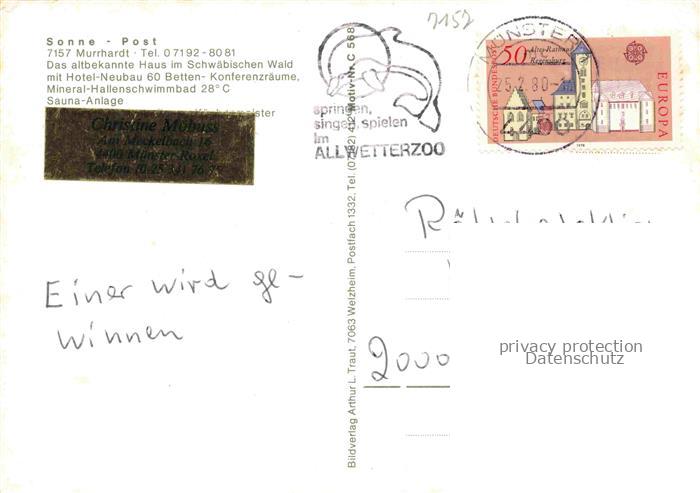 Sonne - Post
7157 Murrhardt · Tel. 07192-8081
Das altbekannte Haus im Schwäbischen Wald
mit Hotel-Neubau 60 Betten- Konferenzräume,
Mineral-Hallenschwimmbad 28° C
Sauna-Anlage
Christine Möbuss
Am Meckelbach 16
4400 Münster-Roxel
Telefon (0 25 34) 76
7157
springen,
singen, spielen
im
ALLWETTERZOO
MÜNSTER
2.80
50
Altes Rathaus
Regensburg
DEUTSCHE BUNDESPOST
EUROPA
1978
Bildverlag Arthur L. Traut, 7063 Welzheim, Postfach 1332, Tel. Motiv-Nr. C 568
Einer wird ge-
winnen
2000
privacy protection
Datenschutz